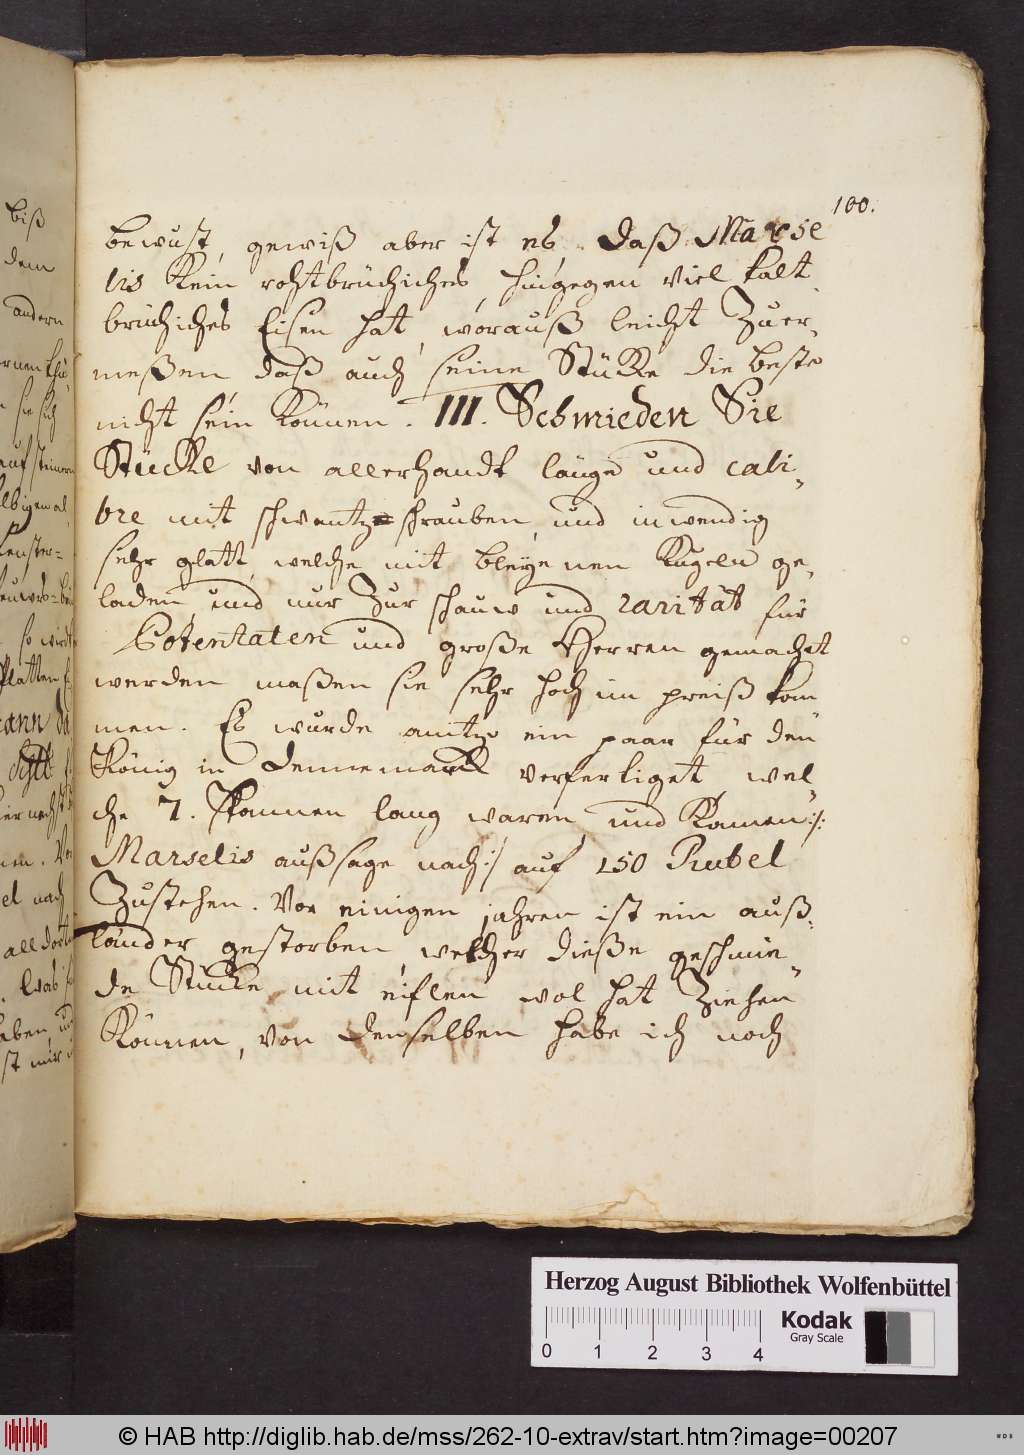 100.
bewust, gewiß aber ist es, daß Marse
lis kein rohtbrüchiches, hingegen viel kalt
brüchiches Eisen hat, worauß leicht zuer-
meßen daß auch seine Stücke die beste
nicht sein können. III. Schmieden Sie
Stücke von allerhandt länge und cali-
bre mit schwantz-schrauben, und inwendig
sehr glatt, welche mit bleyenen Kugeln ge-
laden, und nur zur schauw und rarität für
Potentaten und große Herren gemacht
werden maßen sie sehr hoch im preiß kom
men. Es wurde anitzo ein paar für den
König in Dennemarck verfertiget, wel-
che 7. Spannen lang waren, und kamen /:
Marselis außsage nach :/ auf 150 Rubel
zustehen. Vor einigen jahren ist ein auß-
länder gestorben, welcher dieße geschmie-
de Stücke mit reiflen wol hat ziehen
können, von denselben habe ich noch
biß
dem
andern
sie sich
auf steinern
selbigem al
fenster-
so wird
Platten
mann
hiernechst
nen. Vo
el nach
alldort
. Was
haben, und
ist mir
Herzog August Bibliothek Wolfenbüttel
Kodak
Gray Scale
0 1 2 3 4
© HAB http://diglib.hab.de/mss/262-10-extrav/start.htm?image=00207